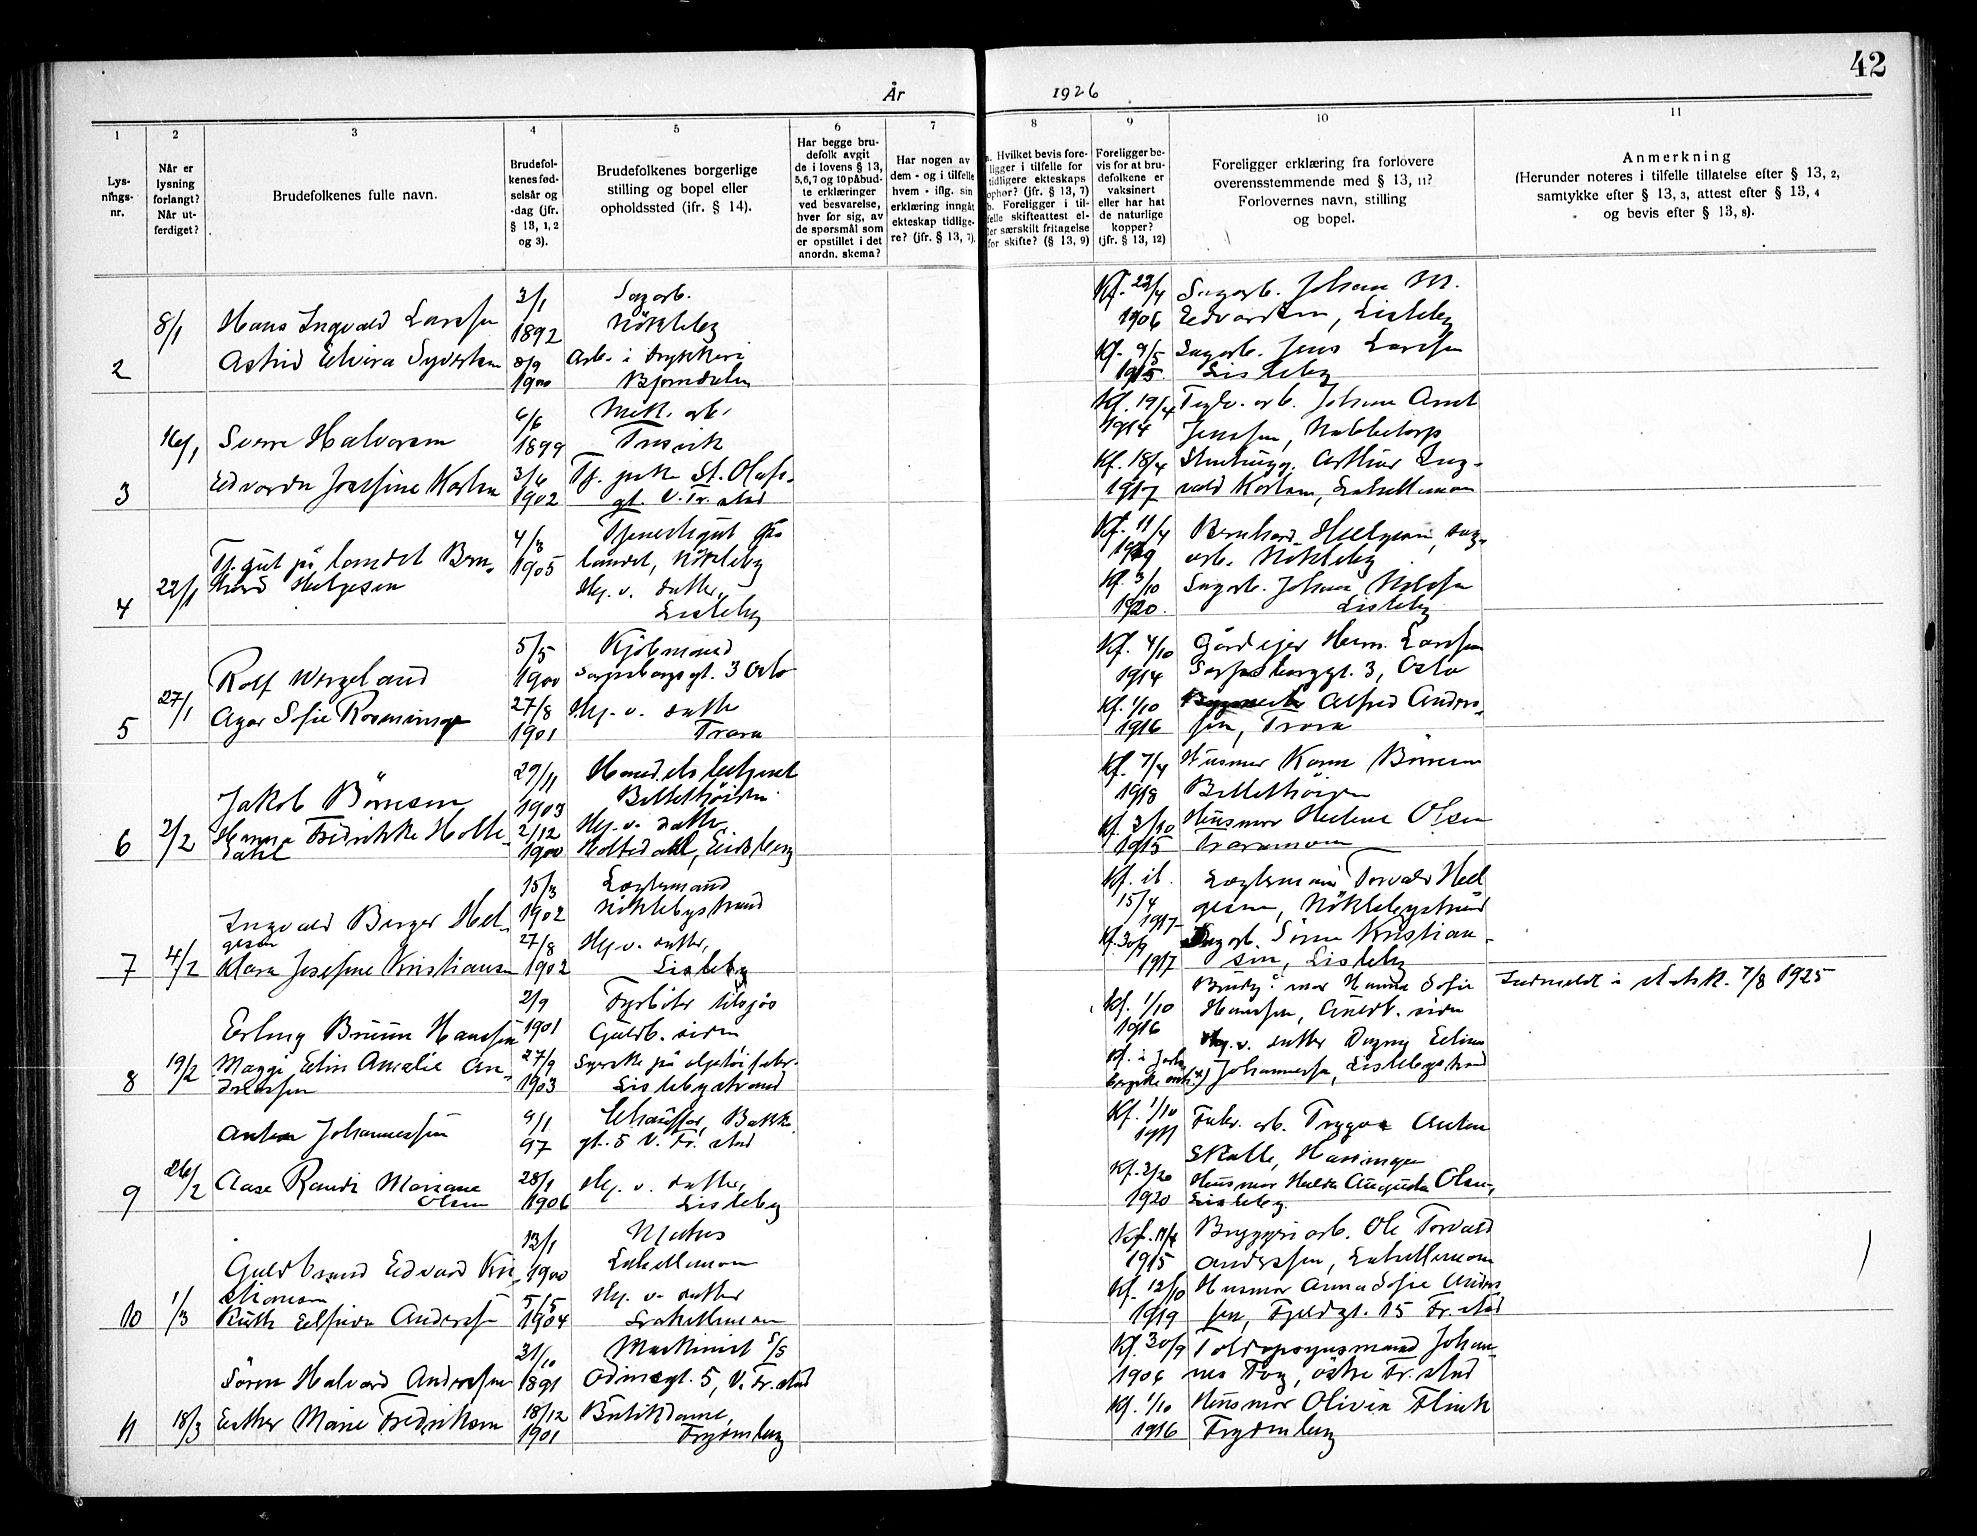 42
År 1926
1
2
3
4
5
6
7
8
9
10
11
Lys-
nings-
nr.
Når er
lysning
forlangt?
Når ut-
ferdiget?
Brudefolkenes fulle navn.
Brudefol-
kenes fød-
selsår og
-dag (jfr.
§ 13, 1, 2
og 3).
Brudefolkenes borgerlige
stilling og bopel eller
opholdssted (ifr. § 14).
Har begge bru-
defolk avgit
de i lovens § 13,
5,6,7 og 10 påbud-
te erklæringer
ved besvarelse,
hver for sig, av
de spørsmål som
er opstillet i det
anordn. skema?
Har nogen av
dem - og i tilfelle
hvem - iflg. sin
erklæring inngåt
ekteskap tidlige-
re? (jfr. § 13, 7).
a. Hvilket bevis fore-
ligger i tilfelle for
tidligere ekteskaps
ophør? (jfr. § 13, 7)
b. Foreligger i til-
felle skifteattest el-
ler særskilt fritagelse
for skifte? (§ 13, 9)
Foreligger be-
vis for at bru-
defolkene er
vaksinert
eller har hat
de naturlige
kopper?
(jfr. § 13, 12)
Foreligger erklæring fra forlovere
overensstemmende med § 13, 11?
Forlovernes navn, stilling
og bopel.
Anmerkning
(Herunder noteres i tilfelle tillatelse efter § 13, 2,
samtykke efter § 13, 3, attest efter § 13, 4
og bevis efter § 13, 8).
2
8/1
Hans Ingvald Larsen
Astrid Elvira Syvertsen
3/1
1892
8/9
1900
Sagarb.
Nökleby
Arb. i trykkeri
Bjørndalen
Kf. 22/4
1906
Kf. 9/5
1915.
Sagarb. Johan M.
Edvardsen, Lisleby
Sagarb. Jens Larsen
Lisleby
3
16/1
Sverre Halvorsen
Edvarda Josefine Karlsen
6/6
1899
3/6
1902
Mek. arb.
Trosvik
Tj. pike St. Olafs-
gt. V. Fr.stad
Kf. 19/4
1914
Kf. 18/4
1917
Teglv. arb. Johan Arnt
Jensen, Nabbetorp
Arthur Ing-
vald Karlsen,
4
22/1
Tj. gut på landet Bern-
hard Helgesen
4/3
1905
Tjenestegut på
landet, Nökleby
Hj. v. datter,
Lisleby
Kf. 11/4
1919
Kf. 3/10
1920.
Bernhard Helgesen, sag-
arb. Nökleby
Sagarb. Johan Nilsen
Lisleby
5
27/1
Rolf Wergeland
Agar Sofie Rovminge
5/5
1900
27/8
1901
Kjöbmand
Sarpsborggt. 3 Oslo
Hj. v. datter
Trara
Kf. 4/10
1914
Kf. 1/10
1916
Gårdeier Herm. Larsen
Sarpsborggt. 3, Oslo
Alfred Anders-
sen, Trara
6
2/2
Jakob Börresen
Hanna Fredrikke Holte-
dahl
29/11
1903
2/12
1900
Hand.els betjent
Belleihöiden
Hj. v. datter
Holtedahl, Eidsberg
Kf. 7/4
1918
Kf. 3/10
1915
Husmor Karen Börresen
Belleihöiden
Husmor Helene Olsen
Traramoen
7
4/2
Ingvald Birger Hel-
gesen
Klara Josefine Kristiansen
15/3
1902
27/8
1902
Lægtemand
Nöklebystrand
Hj. v. datter,
Lisleby
Kf. it.
15/4
1917
Kf. 30/9
1917
Torvald Hel
gesen, Nöklebystrand
Sagarb. Sören Kristian-
sen, Lisleby
8
19/2
Erling Bruun Hanssen
Maggi Elin Amalie An-
dreassen
2/9
1901
27/9
1903
Fyrböter tilsjös
Guldb. siden
Syerske på oljetöifabr.
Lislebystrand
Kf. 1/10
1916
Brudg.s mor Hanna Sofie
Hanssen, Guldb. siden
Hj. v. datter Dagny Eline
Johannessen, Lislebystrand
Indmeldt i statsk. 7/8 1925
9
26/2
Anton Johannessen
Aase Randi Mariane
Olsen
9/1
97
28/1
1906
Chauffør, Bakke
gt. 5 V. Fr. stad
Hj. v. datter,
Lisleby
Kf. 1/10
1911
Kf. 3/10
1920
Fabr. arb. Trygve Anton
Skolle, Hassingen
Husmor Hulda Augusta Olsen,
Lisleby
10
1/3
Guldbrand Edvard Kri-
stiansen
Ruth Elfrida Andersen
13/1
1900
5/5
1904
Labellemoen
Hj. v. datter
Labellemoen
1915
Kf. 12/10
1919
Bryggeriarb. Ole Torvald
Anderssen, Labellemoen
Husmor Anna Sofie Anders-
sen, Fjeldgt. 15 Fr. stad
11
18/3
Sören Halvard Anderssen
Esther Marie Fredriksen
31/10
1891
18/12
1901
Maskinist S/S
Odinsgt. 5, V. Fr. stad
Butikdame,
Frydenberg
Kf. 30/9
1906
Kf. 1/10
1916
Toldopsynsmand Johan-
nes Foy, östre Fr. stad
Husmor Olivia Flink
Frydenberg